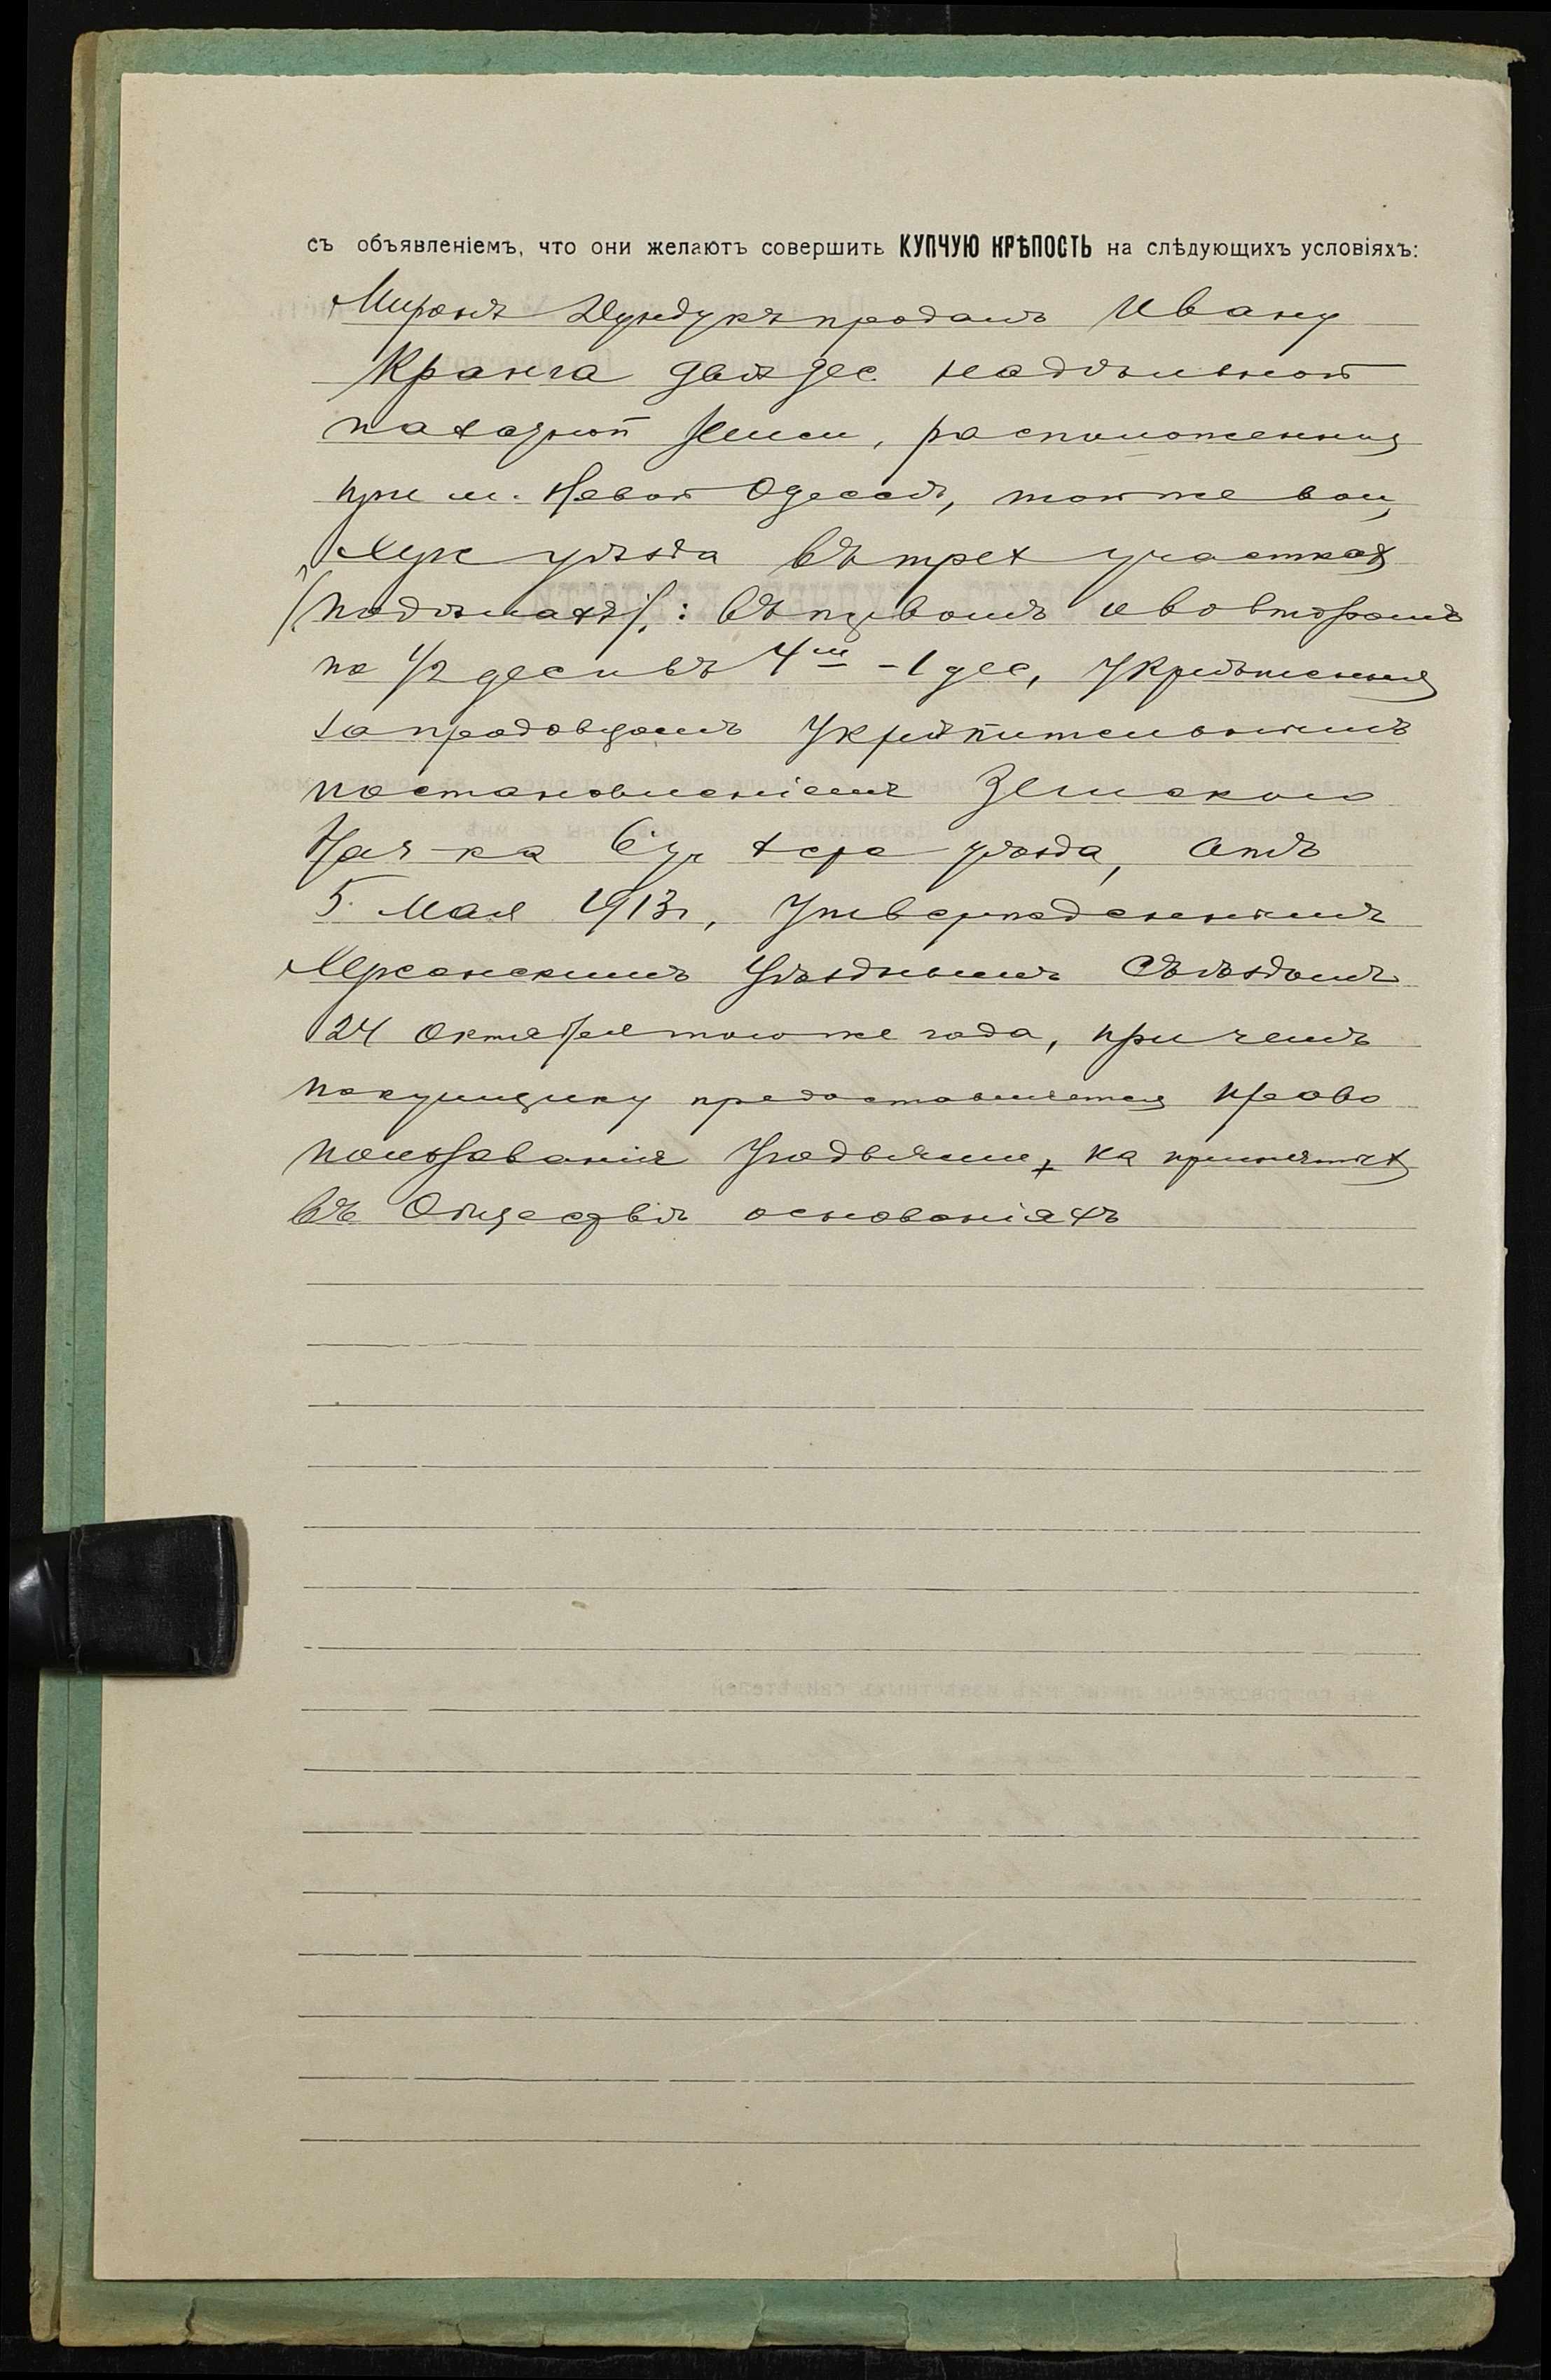 съ объявленіемъ, что они желаютъ совершить КУПЧУЮ КРѢПОСТЬ на слѣдующихъ условіяхъ:
Миронъ Дундукъ продалъ Ивану
Кранга двѣ дес. надѣльной
пахатной земли, расположенныя
при м. Новой Одессѣ, той же вол,
Херс уѣзда въ трех участках
/подѣлахъ/: въ первомъ и во второмъ
по 1/2 дес и въ 4мъ - 1 дес, укрѣпленныя
за продавцомъ укрѣпительнымъ
постановленіемъ Земскаго
Нач-ка 6 уч Херс уѣзда, отъ
5 Мая 1913 г, утвержденнымъ
Херсонскимъ Уѣзднымъ Съѣздомъ
24 Октября того же года, при чемъ
покупщику предоставляется право
пользованія угодьями, на принятых
въ Обществѣ основаніяхъ